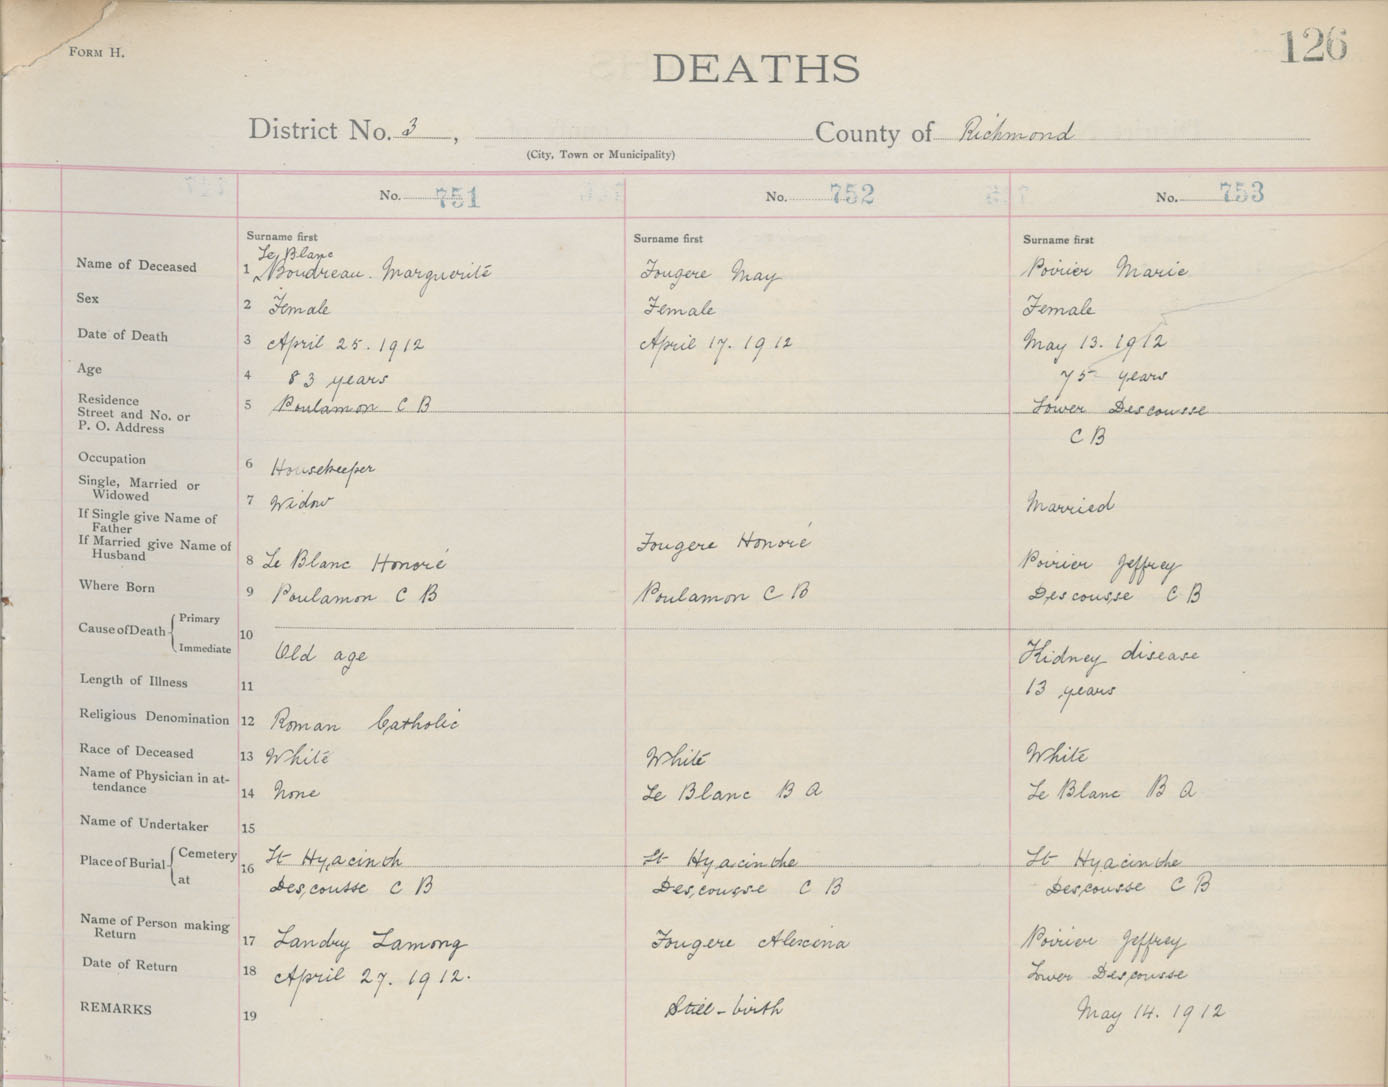 FORM H.
126
DEATHS
District No. 3, County of Richmond
(City, Town or Municipality)
No. 751 No. 752 No. 753
Surname first Surname first Surname first
Le Blanc
Name of Deceased 1 Boudreau. Marguerite Fougere May Poirier Marie
Sex 2 Female Female Female
Date of Death 3 April 25. 1912 April 17. 1912 May 13. 1912
Age 4 83 years 75 years
Residence
Street and No. or
P. O. Address 5 Poulamon C B Lower Descousse
C B
Occupation 6 Housekeeper
Single, Married or
Widowed 7 Widow Married
If Single give Name of
Father
If Married give Name of
Husband 8 Le Blanc Honoré Fougere Honoré Poirier Jeffrey
Where Born 9 Poulamon C B Poulamon C B Descousse C B
Cause of Death Primary
Immediate 10 Old age Kidney disease
Length of Illness 11 13 years
Religious Denomination 12 Roman Catholic
Race of Deceased 13 White White White
Name of Physician in at-
tendance 14 None Le Blanc B A Le Blanc B A
Name of Undertaker 15
Place of Burial Cemetery 16 St Hyacinth St Hyacinthe St Hyacinthe
at Descousse C B Descousse C B Descousse C B
Name of Person making
Return 17 Landry Lamong Fougere Alexina Poirier Jeffrey
Date of Return 18 April 27. 1912. Lower Descousse
REMARKS 19 Still-birth May 14. 1912